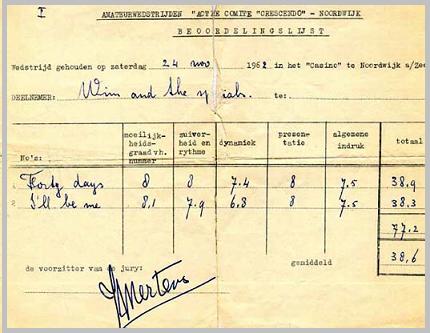 I
AMATEURWEDSTRIJDEN "ACTIE COMITE "CRESCENDO" - NOORDWIJK
BEOORDELINGSLIJST
Wedstrijd gehouden op zaterdag 24 nov 1962 in het "Casino" te Noordwijk a/Zee
DEELNEMER: Wim and the specials. te:
moeilijk- zuiver- dynamiek presen- algemene totaal
heids- heid en tatie indruk
graad vh. rythme
nummer
No's:
1 Forty days 8 8 7.4 8 7.5 38,9
2 I'll be me 8,1 7.9 6.8 8 7.5 38.3
77.2
de voorzitter van de jury: gemiddeld 38,6
Mertens